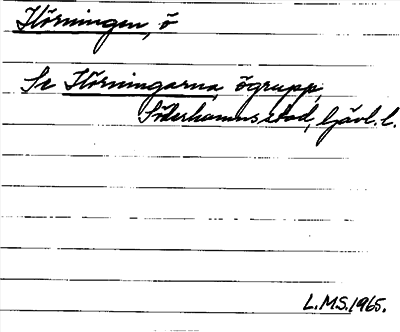 Störningen, ö
Se Störningarna, ögrupp,
Söderhamns stad, Gävl. l.
L.M.S. 1965.